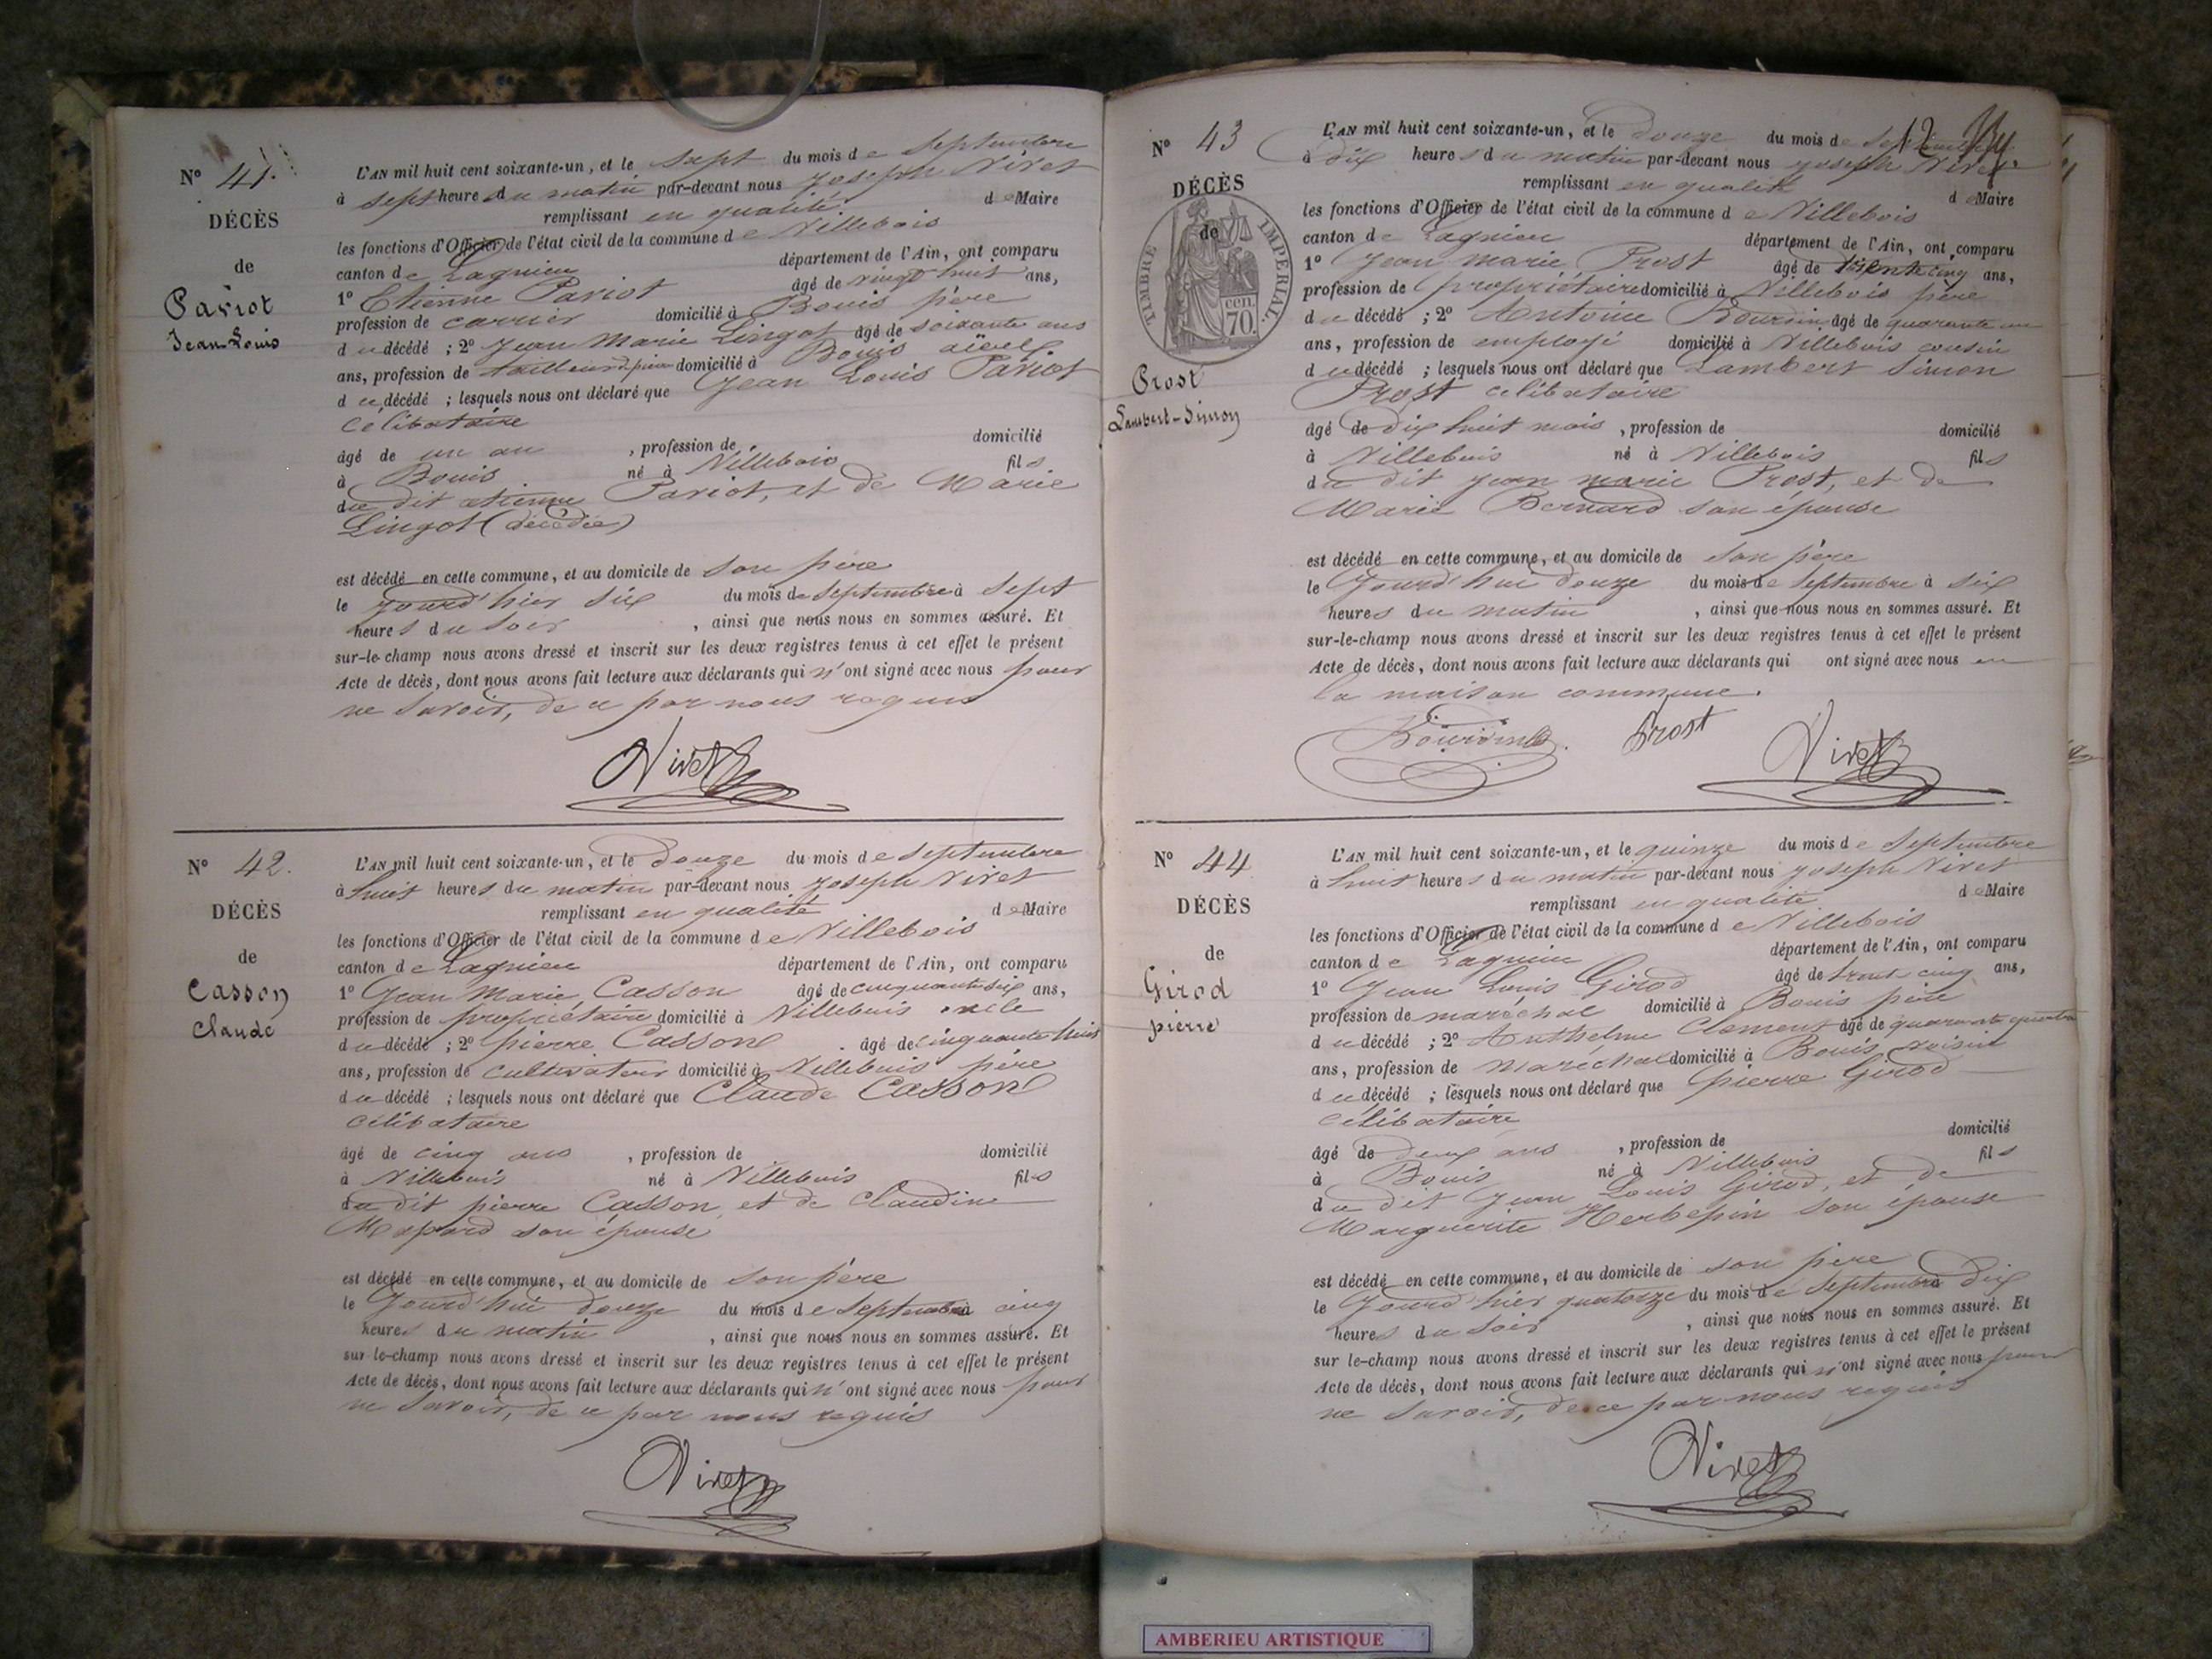 N° 41.
DÉCÈS
de
Pariot
Jean-Louis
L'AN mil huit cent soixante-un, et le sept du mois de septembre
à sept heure du matin par-devant nous Joseph Nivet
remplissant en qualité de Maire
les fonctions d'Officier de l'état civil de la commune de Villebois
canton de Lagnieu département de l'Ain, ont comparu
1° Etienne Pariot âgé de vingt huit ans,
profession de carrier domicilié à Bouis père
du décédé ; 2° Jean Marie Lingot âgé de soixante ans
ans, profession de tailleur d. pierre domicilié à Bouis aïeul
du décédé ; lesquels nous ont déclaré que Jean Louis Pariot
célibataire
âgé de un an , profession de domicilié
à Bouis né à Villebois fils
du dit etienne Pariot, et de Marie
Lingot (décédée)
est décédé en cette commune, et au domicile de son père
le jourd'hier six du mois de septembre à sept
heures du soir , ainsi que nous nous en sommes assuré. Et
sur-le-champ nous avons dressé et inscrit sur les deux registres tenus à cet effet le présent
Acte de décès, dont nous avons fait lecture aux déclarants qui n'ont signé avec nous pour
ne savoir, de ce par nous requis
Nivet
N° 42.
DÉCÈS
de
Casson
Claude
L'AN mil huit cent soixante-un, et le douze du mois de septembre
à huit heures du matin par-devant nous Joseph Nivet
remplissant en qualité de Maire
les fonctions d'Officier de l'état civil de la commune de Villebois
canton de Lagnieu département de l'Ain, ont comparu
1° Jean Marie Casson âgé de cinquante six ans,
profession de propriétaire domicilié à Villebois oncle
du décédé ; 2° pierre Casson âgé de cinquante huit
ans, profession de cultivateur domicilié à Villebois père
du décédé ; lesquels nous ont déclaré que Claude Casson
célibataire
âgé de cinq ans , profession de domicilié
à Villebois né à Villebois fils
du dit pierre Casson, et de Claudine
son épouse
est décédé en cette commune, et au domicile de son père
le Jourd'hui douze du mois de septembre à cinq
heures du matin , ainsi que nous nous en sommes assuré. Et
sur le-champ nous avons dressé et inscrit sur les deux registres tenus à cet effet le présent
Acte de décès, dont nous avons fait lecture aux déclarants qui n'ont signé avec nous pour
ne savoir, de ce par nous requis
Nivet
N° 43
DÉCÈS
de
TIMBRE IMPERIAL.
cen.
70.
Prost
Lambert-Simon
12
L'AN mil huit cent soixante-un, et le douze du mois de septembre
à dix heures du matin par-devant nous Joseph Nivet
remplissant en qualité de Maire
les fonctions d'Officier de l'état civil de la commune de Villebois
canton de Lagnieu département de l'Ain, ont comparu
1° Jean Marie Prost âgé de trente cinq ans,
profession de propriétaire domicilié à Villebois père
du décédé ; 2° Antoine Bourdin âgé de quarante un
ans, profession de employé domicilié à Villebois cousin
du décédé ; lesquels nous ont déclaré que Lambert Simon
Prost célibataire
âgé de dix huit mois , profession de domicilié
à Villebois né à Villebois fils
du dit Jean marie Prost, et de
Marie Bernard son épouse
est décédé en cette commune, et au domicile de son père
le Jourd'hui douze du mois de septembre à six
heures du matin , ainsi que nous nous en sommes assuré. Et
sur-le-champ nous avons dressé et inscrit sur les deux registres tenus à cet effet le présent
Acte de décès, dont nous avons fait lecture aux déclarants qui ont signé avec nous en
la maison commune.
Bourdin Prost Nivet
N° 44
DÉCÈS
de
Girod
pierre
L'AN mil huit cent soixante-un, et le quinze du mois de septembre
à huit heures du matin par-devant nous Joseph Nivet
remplissant en qualité de Maire
les fonctions d'Officier de l'état civil de la commune de Villebois
canton de Lagnieu département de l'Ain, ont comparu
1° Jean Louis Girod âgé de trente cinq ans,
profession de maréchal domicilié à Bouis père
du décédé ; 2° Anthelme Clement âgé de quarante quatre
ans, profession de maréchal domicilié à Bouis voisin
du décédé ; lesquels nous ont déclaré que pierre Girod
célibataire
âgé de deux ans , profession de domicilié
à Bouis né à Villebois fils
du dit Jean Louis Girod, et de
Marguerite Herbepin son épouse
est décédé en cette commune, et au domicile de son père
le Jourd'hier quatorze du mois de septembre à dix
heures du soir , ainsi que nous nous en sommes assuré. Et
sur le-champ nous avons dressé et inscrit sur les deux registres tenus à cet effet le présent
Acte de décès, dont nous avons fait lecture aux déclarants qui n'ont signé avec nous pour
ne savoir, de ce par nous requis
Nivet
AMBERIEU ARTISTIQUE